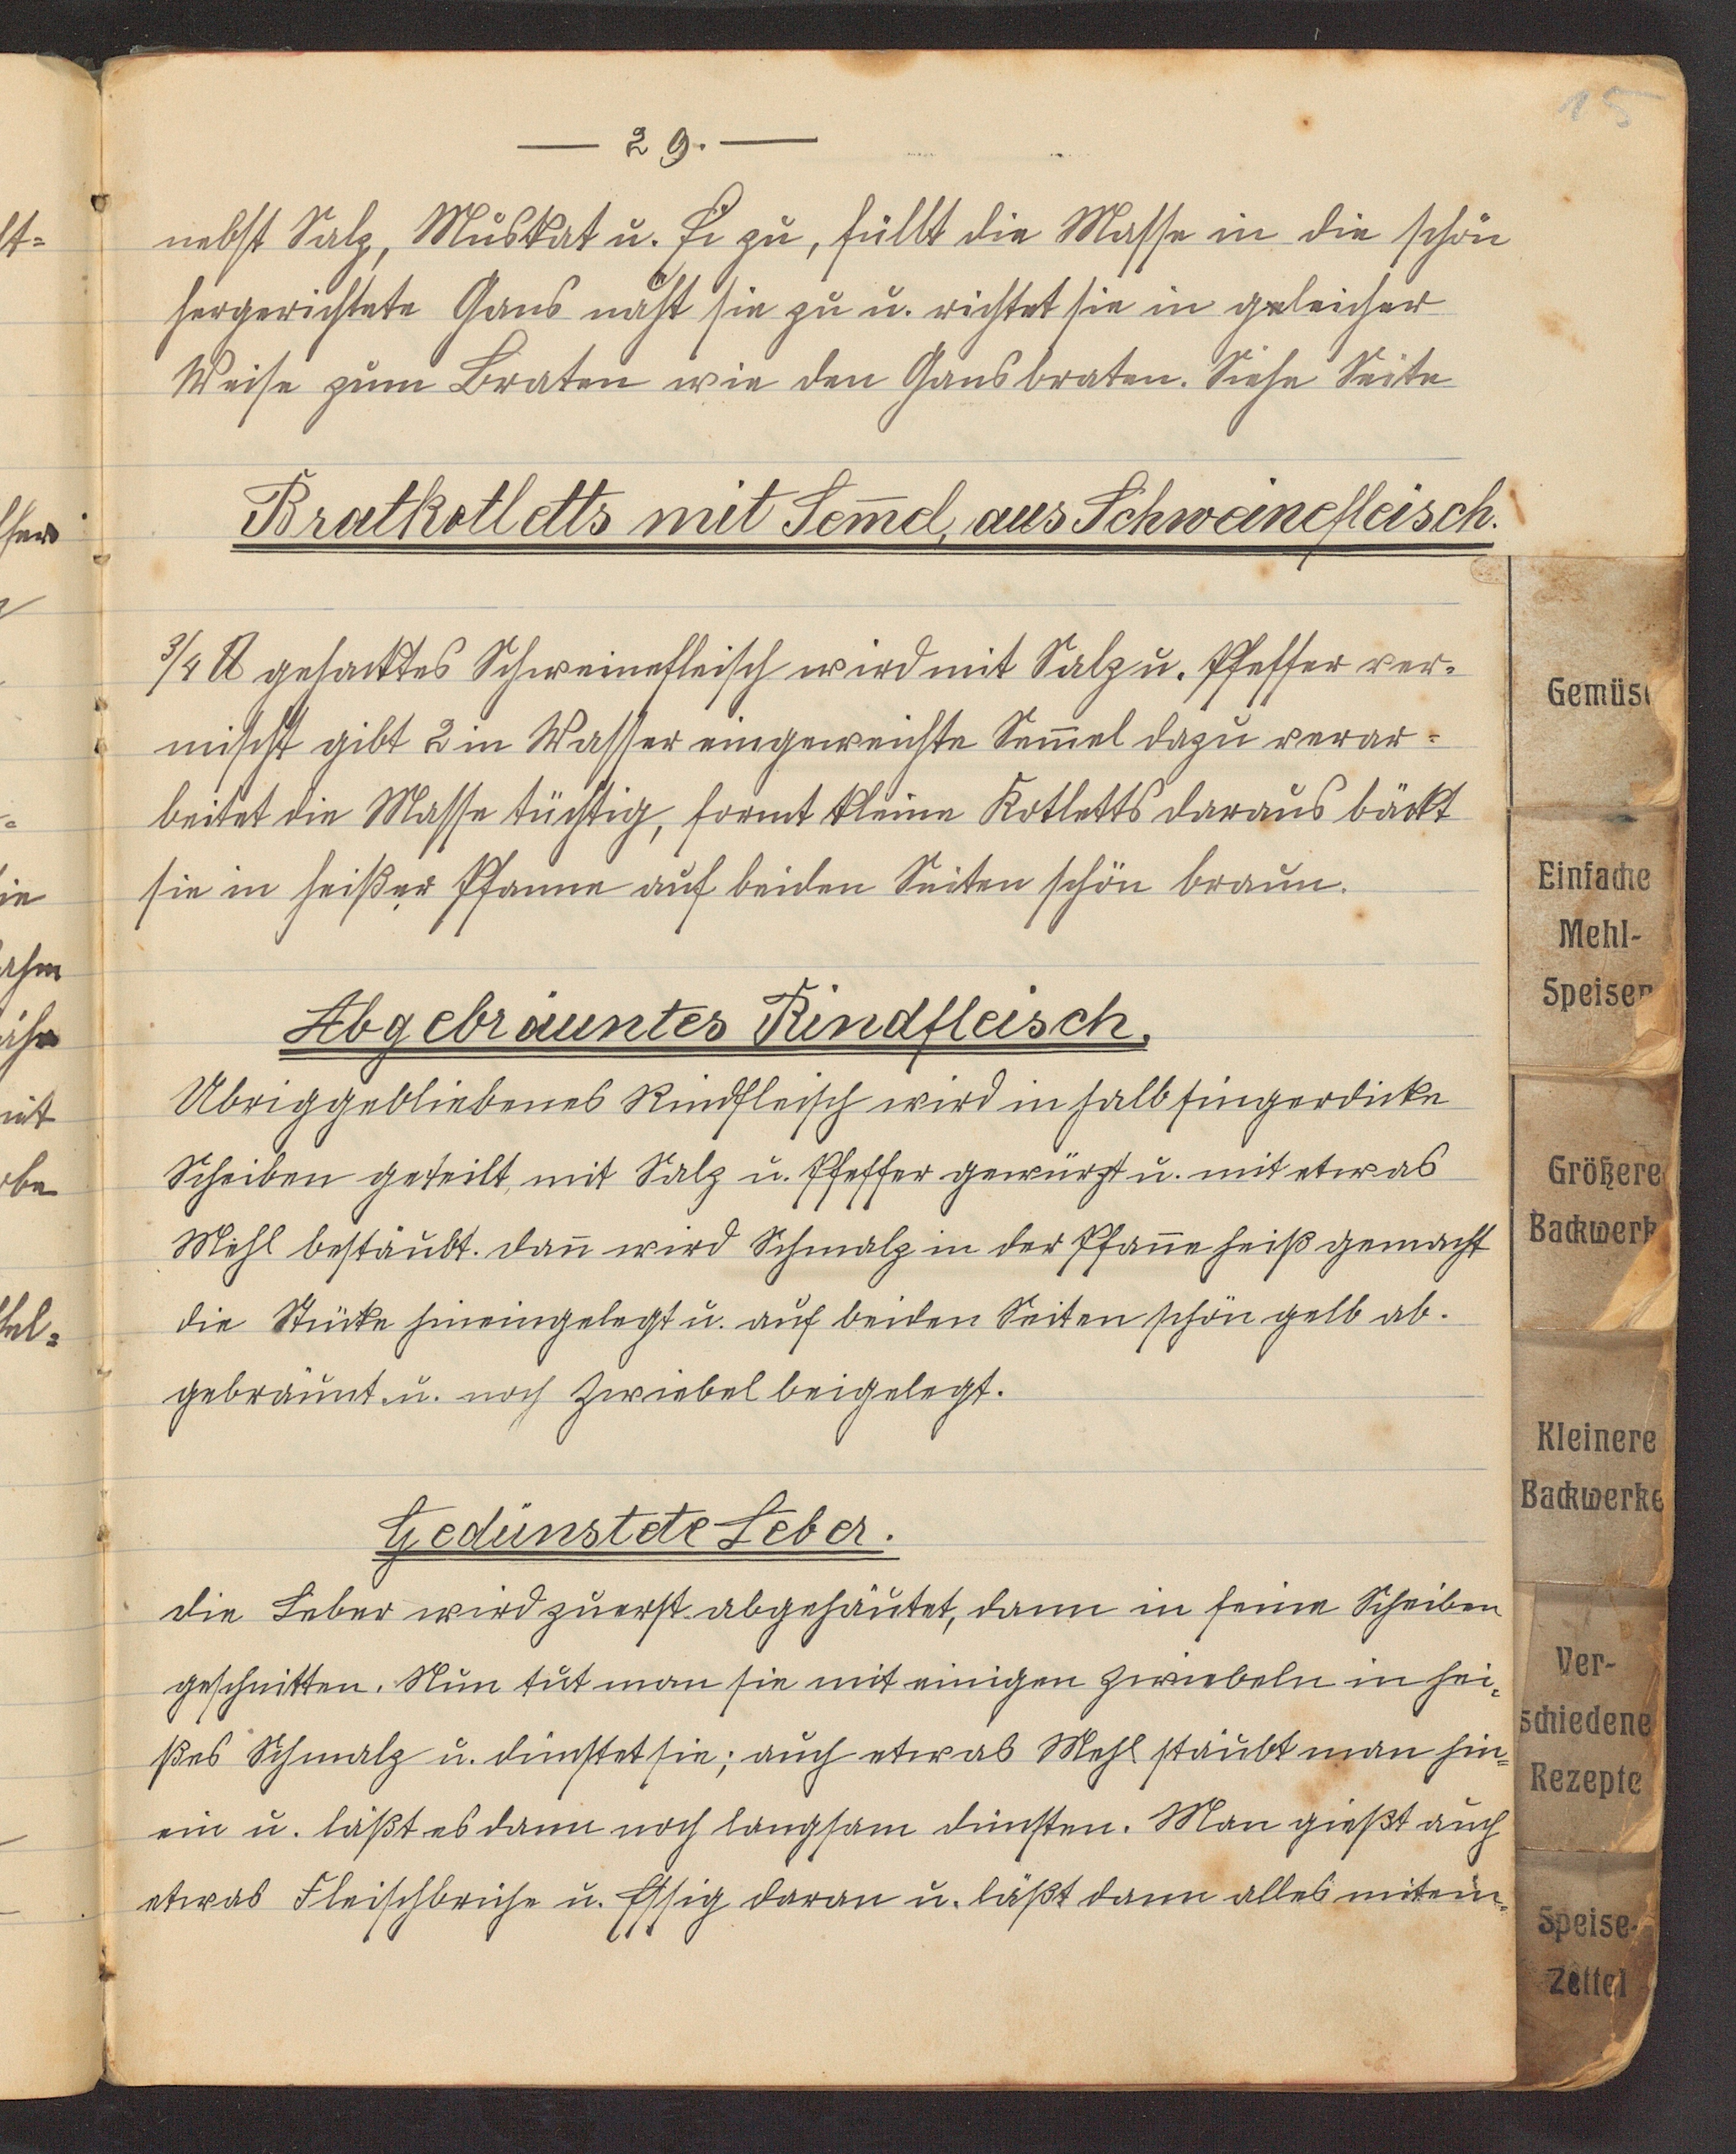 15
— 29. —
nebst Salz, Muskat u. Ei zu, füllt die Masse in die schön
hergerichtete Gans näht sie zu u. richtet sie in gleicher
Weise zum Braten wie den Gansbraten. Siehe Seite
Bratkotletts mit Sem̄el, aus Schweinefleisch.
3/4 ℔ gehacktes Schweinefleisch wird mit Salz u. Pfeffer ver-
mischt gibt 2 in Wasser eingeweichte Sem̄el dazu verar-
beitet die Masse tüchtig, formt kleine Kotletts daraus bäckt
sie in heißer Pfanne auf beiden Seiten schön braun.
Abgebräuntes Rindfleisch.
Übriggebliebenes Rindfleisch wird in halbfingerdicke
Scheiben geteilt, mit Salz u. Pfeffer gewürzt u. mit etwas
Mehl bestäubt. dan̄ wird Schmalz in der Pfan̄e heiß gemacht
die Stücke hineingelegt u. auf beiden Seiten schön gelb ab-
gebräunt u. noch Zwiebel beigelegt.
Gedünstete Leber.
die Leber wird zuerst abgehäutet, dann in feine Scheiben
geschnitten. Nun tut man sie mit einigen Zwiebeln in hei-
ßes Schmalz u. dünstet sie; auch etwas Mehl stäubt man hin=
ein u. läßt es dann noch langsam dünsten. Man gießt auch
etwas Fleischbrühe u. Essig daran u. läßt dann alles mitein-
Gemüse
Einfache
Mehl-
Speisen
Größere
Backwerk
Kleinere
Backwerke
Ver-
schiedene
Rezepte
Speise-
Zettel